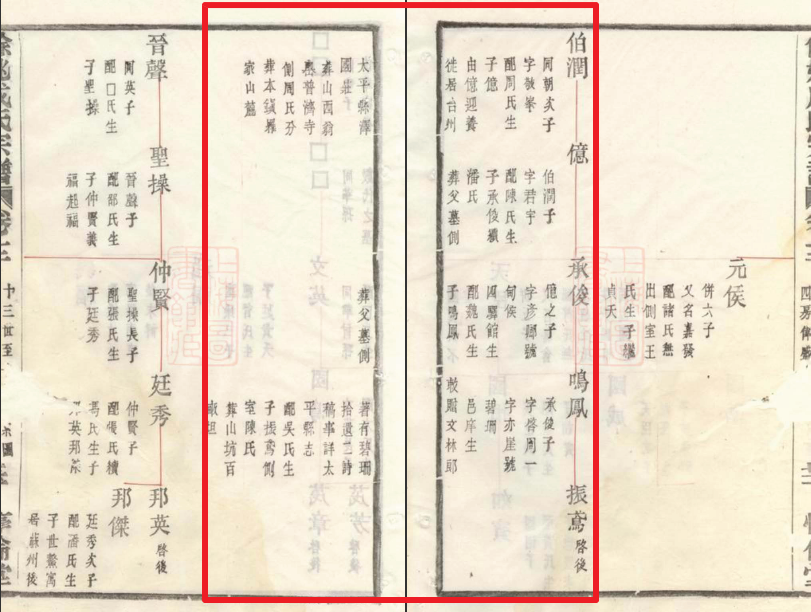 元侯
併六子
又名嘉發
配諸氏無
出側室王
氏生子繼
貞天
伯潤
同朝次子
字敬峯
配周氏生
子億
由億迎養
徙居台州
太平縣澤
國
葬山西翁
岙普濟寺
側周氏另
葬本鎮羅
家山麓
億
伯潤子
字君宇
配陳氏生
子承俊繼
潘氏
葬父墓側
承俊
億之子
字彥卿號
旬侯
四驛館生
配魏氏生
子鳴鳳
葬父墓側
鳴鳳
承俊子生
字啓周一
字亦崖號
碧珊
邑庠生
敕贈文林郎
著有碧珊
拾遺二詩
稿事詳太
平縣志
配吳氏生
子振鳶側
室陳氏
葬山坑百
畝坦
振鳶 啓後
晉聲
同英子
配口氏生
子聖操
聖操
晉聲子
配邵氏生
子仲賢義
福超福
仲賢
聖操長子
配張氏生
子廷秀
廷秀
仲賢子
配張氏續
馮氏生子
邦英邦傑
邦英 啓後
邦傑
廷秀次子
配潘氏生
子世鰲寓
居蘇州後
十三世至